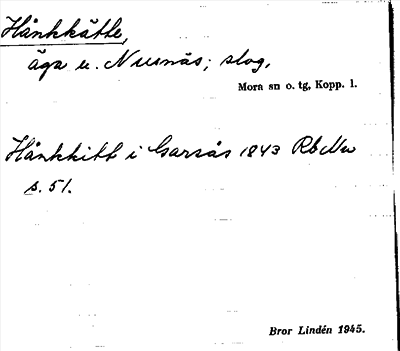 Hånkkätte,
äga u. Nusnäs; slog.
Mora sn o. tg, Kopp. l.
Hånkkitt i Garsås 1843 Rb Nu
s. 51.
Bror Lindén 1945.